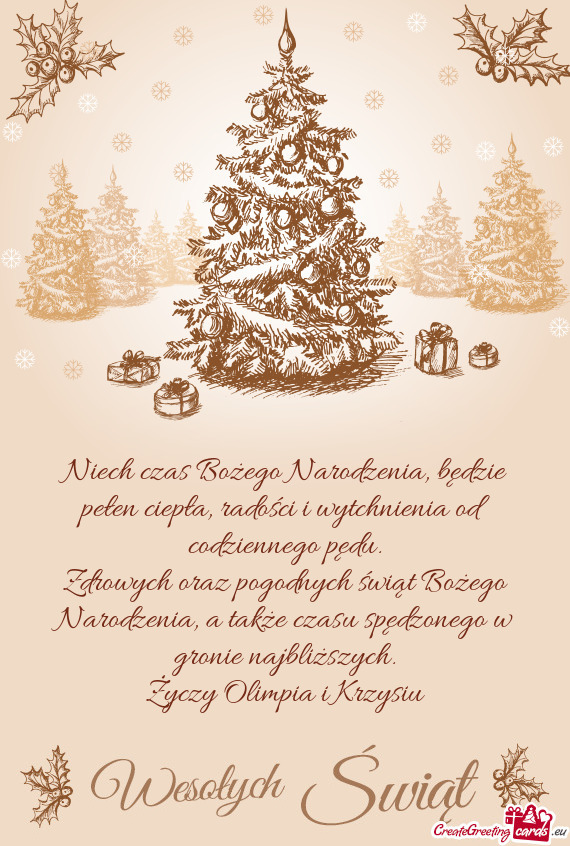 Niech czas Bożego Narodzenia, będzie
pełen ciepła, radości i wytchnienia od
codziennego pędu.
Zdrowych oraz pogodnych świąt Bożego
Narodzenia, a także czasu spędzonego w
gronie najbliższych.
Życzy Olimpia i Krzysiu
Wesołych Świąt
CreateGreeting cards .eu